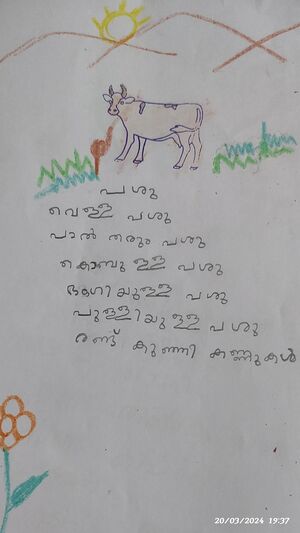 പശു
വെള്ള പശു
പാൽ തരും പശു
കൊമ്പു ള്ള പശു
ഭംഗിയുള്ള പശു
പുള്ളിയുള്ള പശു
രണ്ട് കുഞ്ഞി കണ്ണുകൾ
20/03/2024 19:37